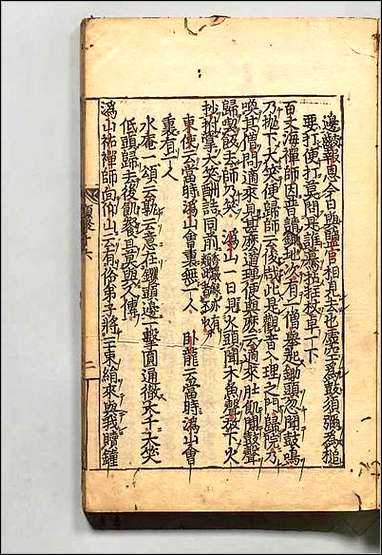 邊齩報恩今日與諸官相見去也虛空爲鼓須彌爲槌
要打便打莫問是誰驀拈拄杖卓一下
百丈海禪師因普請钁地次有一僧舉起鋤頭忽聞鼓鳴
乃抛下大笑便歸師云俊哉此是觀音入理之門歸院乃
喚其僧問適來見甚麼道理便與麼云適來肚飢聞鼓聲
歸喫飯去師乃笑 潙山一日見火頭聞木魚聲放下火
抄拊掌大笑酬詰同前
東使云當時潙山會裏無一人 卧龍云當時潙山會
裏有一人
水庵一頌云動云意在钁頭邊一擊圓通徹大千大笑
低頭歸去後飢飡莫與人傳
潙山祐禪師向仰山云有俗弟子將三束絹來與我贖鐘
二